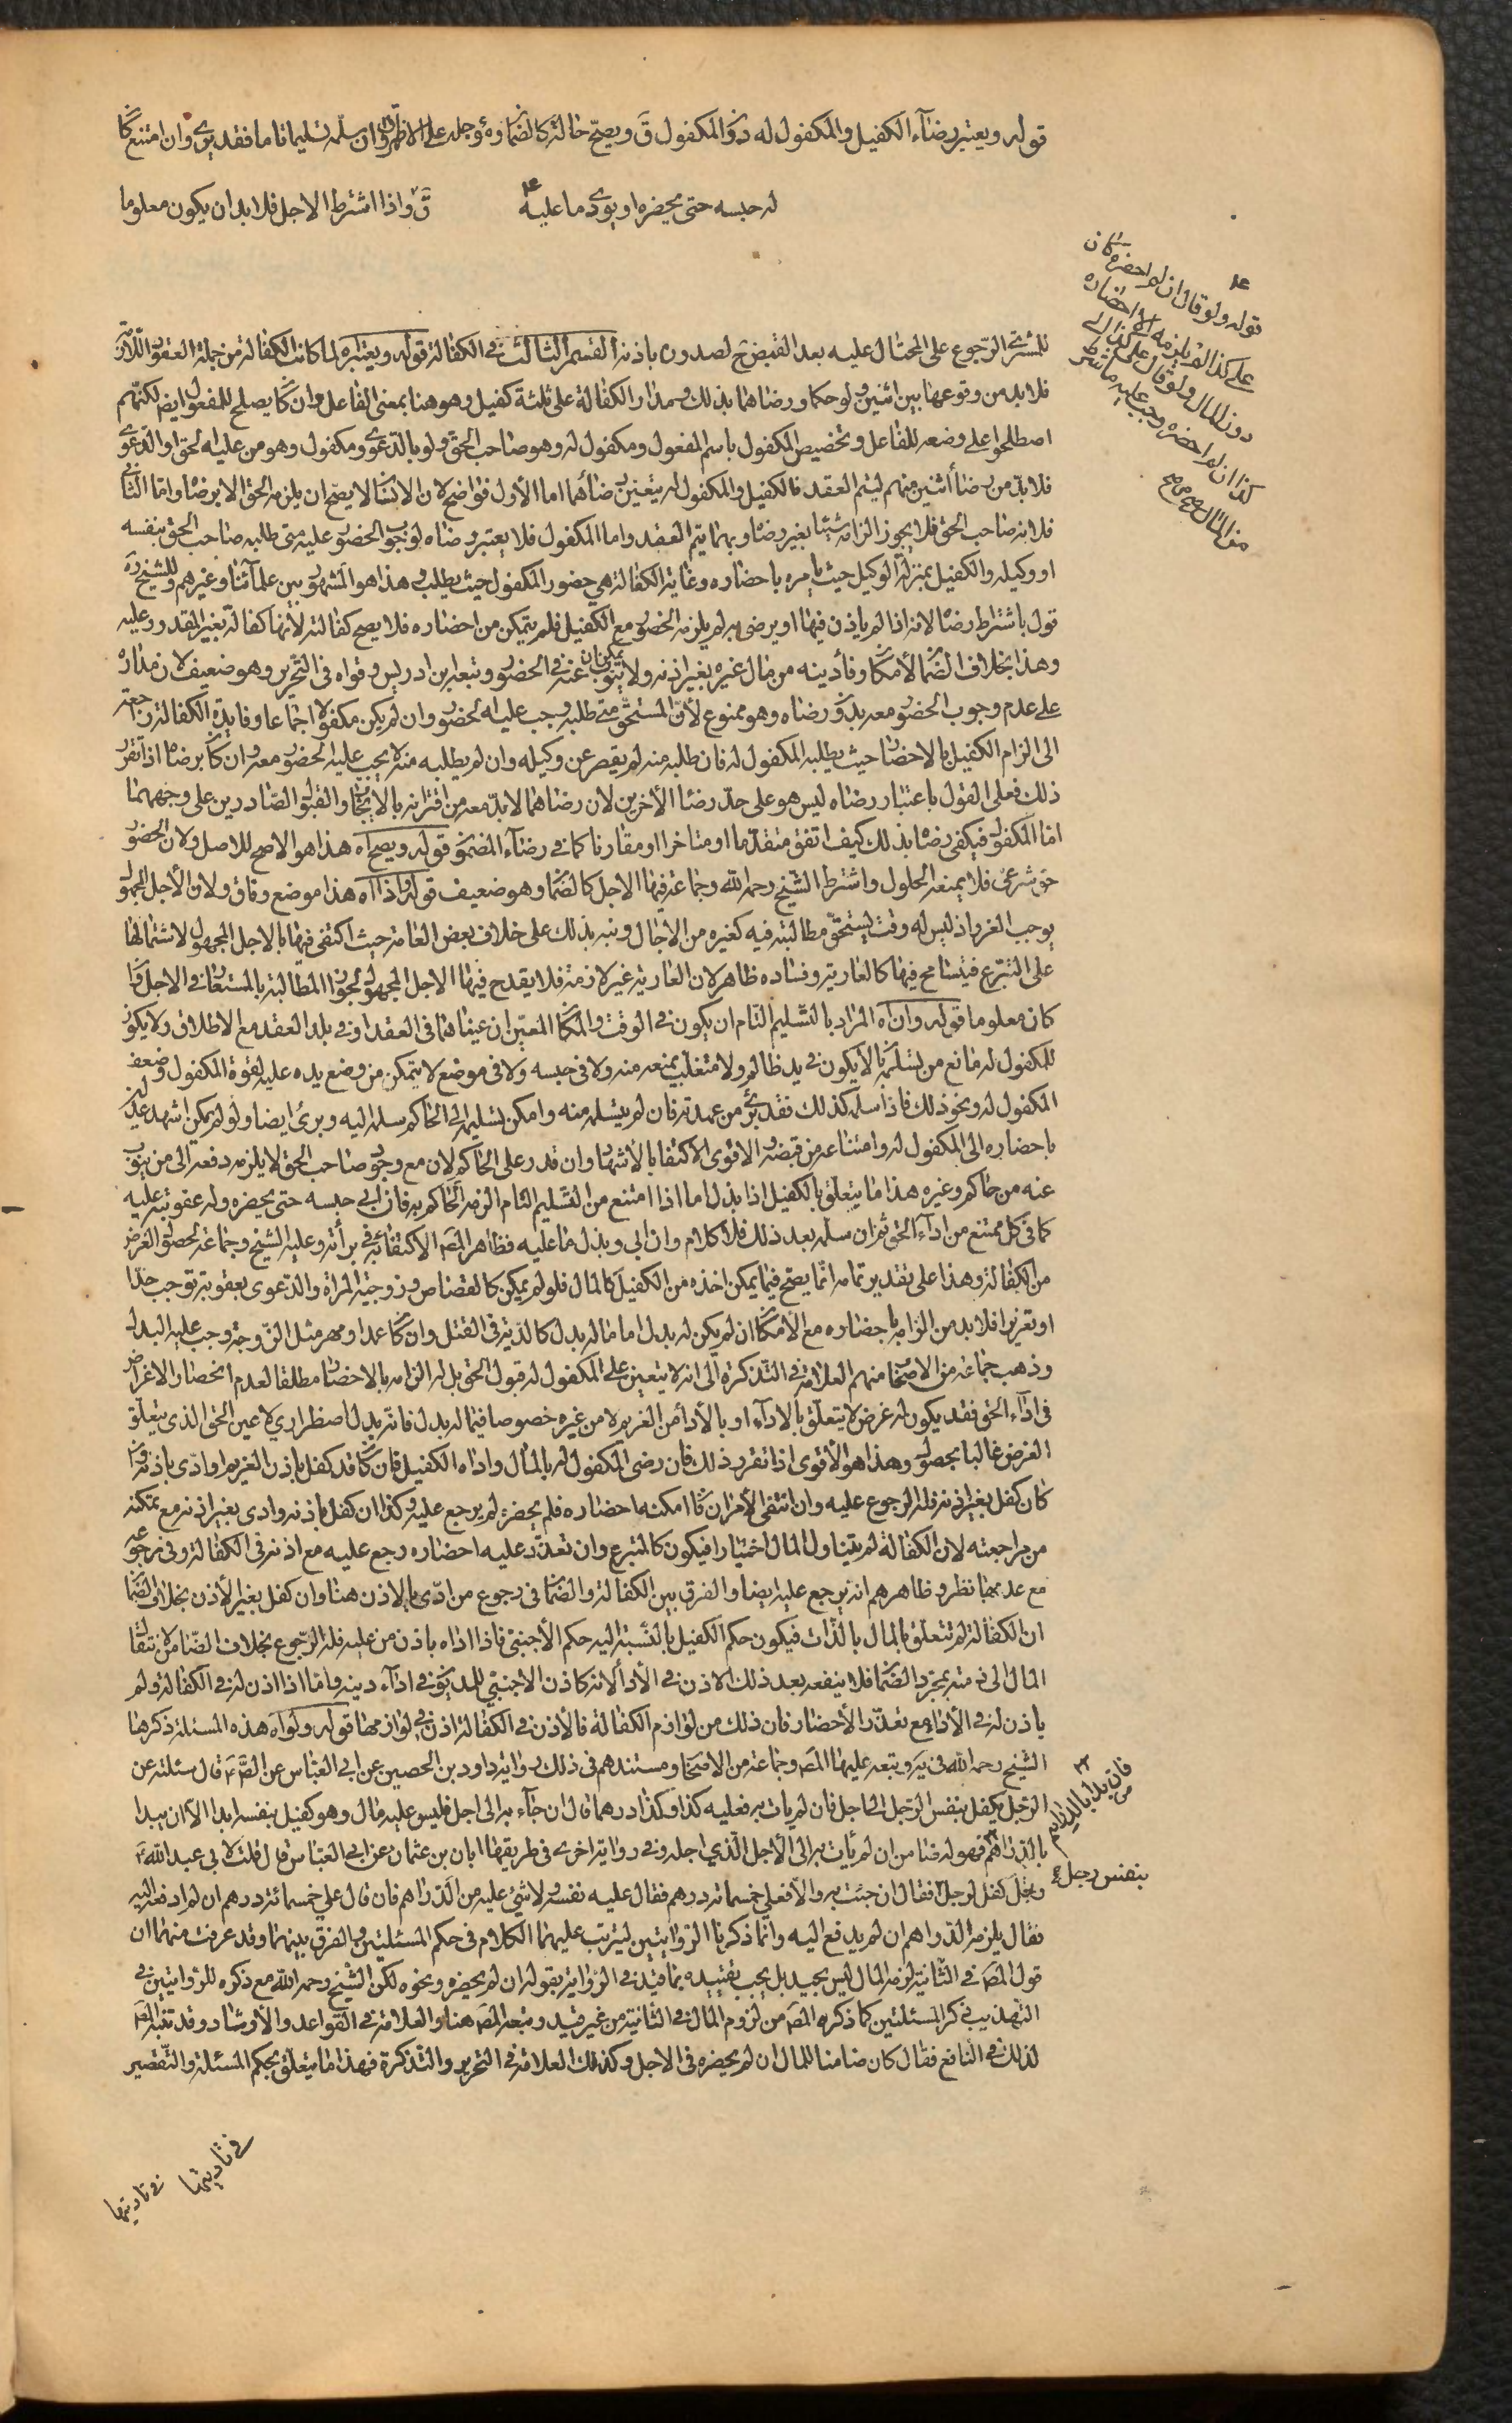 قوله ويعتبر رضاء الكفيل والمكفول له دون المكفول ق ويصح حالة كالضمان ومؤجله على الاظهر ق وان سلمه تسليما تاما فقد برئ وان امتنع كان
له حبسه حتى يحضره او يؤدى ما عليه
ق واذا اشترط الاجل فلا بد ان يكون معلوما
قوله ولو قال ان لم احضره كان
على كذا لم يلزمه الا احضاره
دون المال ولو قال على كذا الى
كذا ان لم احضره وجب عليه ما شرط
من المال
للمشترى الرجوع على المحتال عليه بعد القبض لصدوره باذنه القسم الثالث فى الكفالة قوله ويعتبر اه لما كانت الكفالة من جملة العقود اللازمة
فلا بد من وقوعها بين اثنين ولو حكما ورضاهما بذلك ومدار الكفالة على ثلثة كفيل وهو هنا بمعنى الفاعل وان كان يصلح للمفعول ايضا لكنهم
اصطلحوا على وضعه للفاعل وتخصيص المكفول باسم المفعول ومكفول له وهو صاحب الحق ولو بالدعوى ومكفول وهو من عليه الحق او الدعوى
فلا بد من رضا اثنين منهم ليتم العقد فالكفيل والمكفول له يتعين رضاهما اما الاول فواضح لان الانسان لا يصح ان يلزمه الحق الا برضاه واما الثانى
فلانه صاحب الحق فلا يجوز الزامه شيئا بغير رضاه وبهما يتم العقد واما المكفول فلا يعتبر رضاه لوجوب الحضور عليه متى طلبه صاحب الحق بنفسه
او وكيله والكفيل بمنزلة الوكيل حيث يامره باحضاره وغاية الكفالة هي حضور المكفول حيث يطلب هذا هو المشهور بين علمائنا وغيرهم وللشيخ ره
قول باشتراط رضاه لانه اذا لم ياذن فيها او يرضى به لم يلزمه الحضور مع الكفيل فلم يتمكن من احضاره فلا يصح كفالته لانها كفالة بغير المقدور عليه
وهذا بخلاف الضمان لامكان وفاء دينه من مال غيره بغير اذنه ولا يمكن ان ينوب عنه فى الحضور وتبعه ابن ادريس وقواه فى التحرير وهو ضعيف لان مداره
على عدم وجوب الحضور معه بدون رضاه وهو ممنوع لان المستحق متى طلبه وجب عليه الحضور وان لم يكن مكفولا اجماعا وفايدة الكفالة راجعة
الى الزام الكفيل بالاحضار حيث يطلبه المكفول له فان طلبه منه لم يقصر عن وكيله وان لم يطلبه منه لا يجب عليه الحضور معه وان كان برضاه اذا تقرر
ذلك فعلى القول باعتبار رضاه ليس هو على حد رضا الاخرين لان رضاهما لا بد معه من اقترانه بالايجاب والقبول الصادرين على وجههما
اما المكفول فيكفى رضاه بذلك كيف اتفق متقدما او متاخرا او مقارنا كما فى رضاء المضمون قوله ويصح اه هذا هو الاصح للاصل ولان الحضور
حق شرعى فلا يمنعه الحلول واشترط الشيخ رحمه الله وجماعة فيها الاجل كالضمان وهو ضعيف قوله واذا اه هذا موضع وفاق ولان الاجل المجهول
يوجب الغرر اذ ليس له وقت يستحق مطالبته فيه كغيره من الاجال ونبه بذلك على خلاف بعض العامة حيث اكتفى فيها بالاجل المجهول لاشتمالها
على التبرع فيتسامح فيها كالعارية وفساده ظاهر لان العارية غير لازمة فلا يقدح فيها الاجل المجهول لجواز المطالبة بالمستعار فى الاجل وان
كان معلوما قوله وان اه المراد بالتسليم التام ان يكون فى الوقت والمكان المعين ان عيناهما فى العقد او فى بلد العقد مع الاطلاق ولا يكون
للمكفول له مانع من تسلمه بالا يكون فى يد ظالم ولا متغلب يمنعه منه ولا فى حبسه ولا فى موضع لا يتمكن من وضع يده عليه لقوة المكفول وضعف
المكفول له ونحو ذلك فاذا سلمه كذلك فقد برئ من عهدته فان لم يتسلمه منه وامكن تسليمه الى الحاكم سلمه اليه وبرئ ايضا ولو لم يمكن اشهد عدلين
باحضاره الى المكفول له وامتناعه من قبضه والاقوى الاكتفا بالاشهاد وان قدر على الحاكم لان مع وجود صاحب الحق لا يلزمه دفعه الى من ينوب
عنه من حاكم وغيره هذا ما يتعلق بالكفيل اذا بذل اما اذا امتنع من التسليم التام الزمه الحاكم به فان ابى حبسه حتى يحضره وله عقوبته عليه
كما فى كل ممتنع من اداء الحق ثم ان سلمه بعد ذلك فلا كلام وان ابى وبذل ما عليه فظاهر المص الاكتفا به فى براءته وعليه الشيخ وجماعة لحصول الغرض
من الكفالة وهذا على تقدير تمامه انما يصح فيما يمكن اخذه من الكفيل كالمال فلو لم يمكن كالقصاص وزوجية المراة والدعوى بعقوبة توجب حدا
او تعزيرا فلا بد من الزامه باحضاره مع الامكان ان لم يكن له بدل اما ماله بدل كالدية فى القتل وان كان عمدا ومهر مثل الزوجة وجب عليه البدل
وذهب جماعة من الاصحاب منهم العلامة فى التذكرة الى انه لا يتعين على المكفول له قبول الحق بل له الزامه بالاحضار مطلقا لعدم انحصار الاغراض
فى اداء الحق فقد يكون له غرض لا يتعلق بالاداء او بالاداء من الغريم لا من غيره خصوصا فيما له بدل فانه بدل اضطراري لا عين الحق الذى يتعلق
الغرض غالبا بحصوله وهذا هو الاقوى اذا تقرر ذلك فان رضى المكفول له بالمال واداه الكفيل فان كان قد كفل باذن الغريم او ادى باذنه وان
كان كفل بغير اذنه فله الرجوع عليه وان انتفى الامران فان امكنه احضاره فلم يحضره لم يرجع عليه وكذا ان كفل باذنه وادى بغير اذنه مع تمكنه
من مراجعته لان الكفالة لم يتناول المال اختيارا فيكون كالمتبرع وان تعذر عليه احضاره رجع عليه مع اذنه فى الكفالة وفى رجوعه
مع عدمهما نظر وظاهرهم انه يرجع عليه ايضا والفرق بين الكفالة والضمان فى رجوع من ادى بالاذن هنا وان كفل بغير الاذن بخلاف الضمان
ان الكفالة لم تتعلق بالمال بالذات فيكون حكم الكفيل بالنسبة اليه حكم الاجنبى فاذا اداه باذن من عليه فله الرجوع بخلاف الضامن لانتقال
المال الى ذمته بمجرد الضمان فلا ينفعه بعد ذلك الاذن فى الاداء لانه كاذن الاجنبي للمديون فى اداء دينه واما اذا اذن له فى الكفالة ولم
ياذن له فى الاداء مع تعذر الاحضار فان ذلك من لوازم الكفالة فالاذن فى الكفالة اذن فى لوازمها قوله ولو اه هذه المسئلة ذكرها
الشيخ رحمه الله فى يه وتبعه عليها المص وجماعة من الاصحاب ومستندهم فى ذلك رواية داود بن الحصين عن ابى العباس عن الص ع قال سئلته عن
الرجل يكفل بنفس الرجل الى اجل فان لم يات به فعليه كذا وكذا درهما قال ان جاء به الى اجل فليس عليه مال وهو كفيل بنفسه ابدا الا ان يبدا
بالدراهم فهو له ضامن ان لم يأت به الى الاجل الذي اجله وفى رواية اخرى فى طريقها ابان بن عثمان عن ابى العباس قال قلت لابى عبد الله ع
رجل كفل لرجل فقال ان جئت به والا فعلي خمسمائة درهم فقال عليه نفسه ولا شئ عليه من الدراهم فان قال علي خمسمائة درهم ان لم ادفعه اليه
فقال يلزمه الدراهم ان لم يدفع اليه وانما ذكرنا الروايتين ليترتب عليهما الكلام فى حكم المسئلتين والفرق بينهما وقد عرفت منهما ان
قول المص فى الثانية لزمه المال ليس بجيد بل يجب تقييده بما قيد فى الرواية بقوله ان لم يحضره ونحوه لكن الشيخ رحمه الله مع ذكره للروايتين فى
التهذيب ذكر المسئلتين كما ذكره المص من لزوم المال فى الثانية من غير قيد وتبعه المص هنا والعلامة فى القواعد والارشاد وقد تنبه المص
لذلك فى النافع فقال كان ضامنا للمال ان لم يحضره فى الاجل وكذلك العلامة فى التحرير والتذكرة فهذا ما يتعلق بحكم المسئلة والتقصير
فان بدا بالدراهم
بنفس رجل
فى تاديتها
فى تاديتها